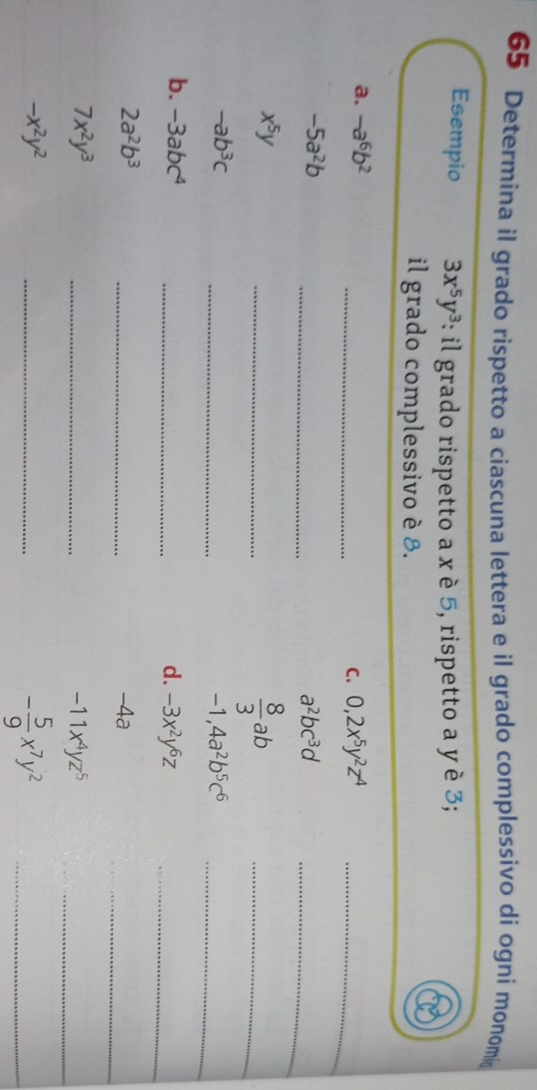 65 Determina il grado rispetto a ciascuna lettera e il grado complessivo di ogni monomio
Esempio 3x⁵y³: il grado rispetto a x è 5, rispetto a y è 3;
il grado complessivo è 8.
a. –a⁶b²
–5a²b
x⁵y
–ab³c
b. –3abc⁴
2a²b³
7x²y³
–x²y²
c. 0,2x⁵y²z⁴
a²bc³d
8/3 ab
–1,4a²b⁵c⁶
d. –3x²y⁶z
–4a
–11x⁴yz⁵
–5/9 x⁷y²